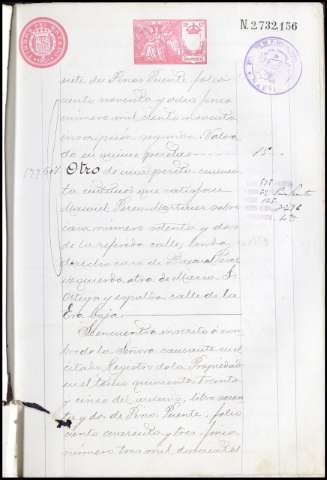 N. 2732156
siete de Pinos Puente, folio
ciento noventa y ocho, finca
número mil ciento noventa
inscripción segunda. Valora
da en quince pesetas 15
Otro de una peseta cincuenta
céntimos que satisface
Manuel Pérez Martínez sobre
casa número setenta y dos
de la referida calle, linda
derecha casa de
izquierda otra de
Ortega y espalda calle de la
Era baja.
Se encuentra inscrito á nom
bre de la Señora causante en el
citado Registro de la Propiedad
en el tomo quinientos treinta
y cinco del archivo, libro sesen
ta y dos de Pinos Puente, folio
ciento cincuenta y tres, finca
número tres mil doscientos